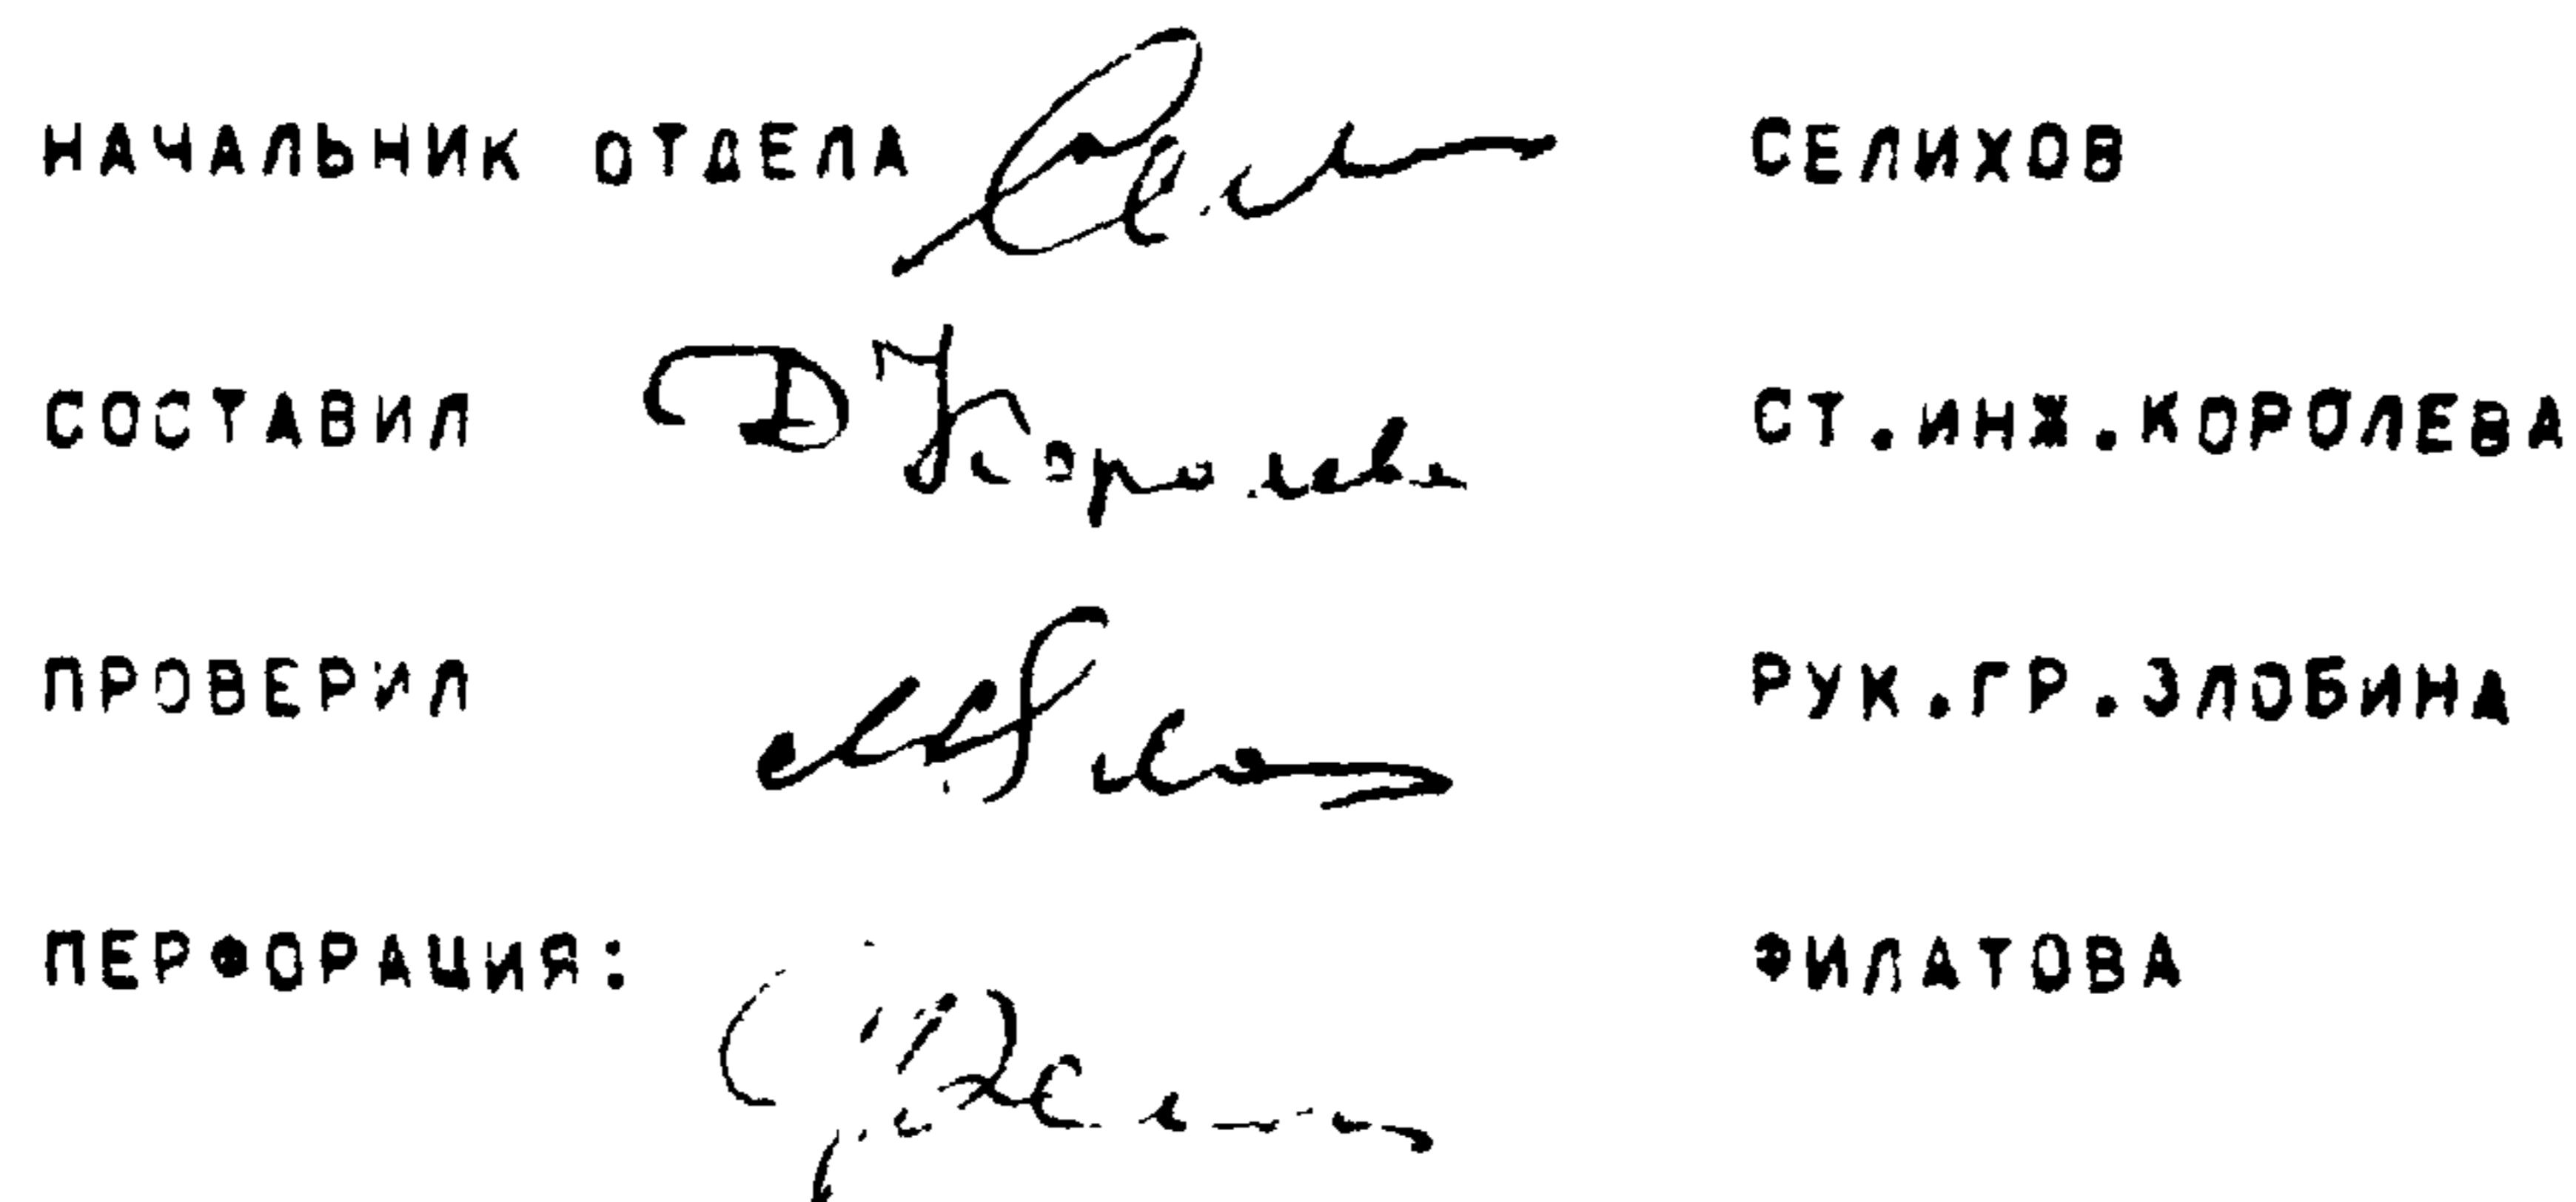 НАЧАЛЬНИК ОТДЕЛА СЕЛИХОВ
СОСТАВИЛ Д Королева СТ.ИНЖ.КОРОЛЕВА
ПРОВЕРИЛ РУК.ГР.ЗЛОБИНА
ПЕРФОРАЦИЯ: ФИЛАТОВА